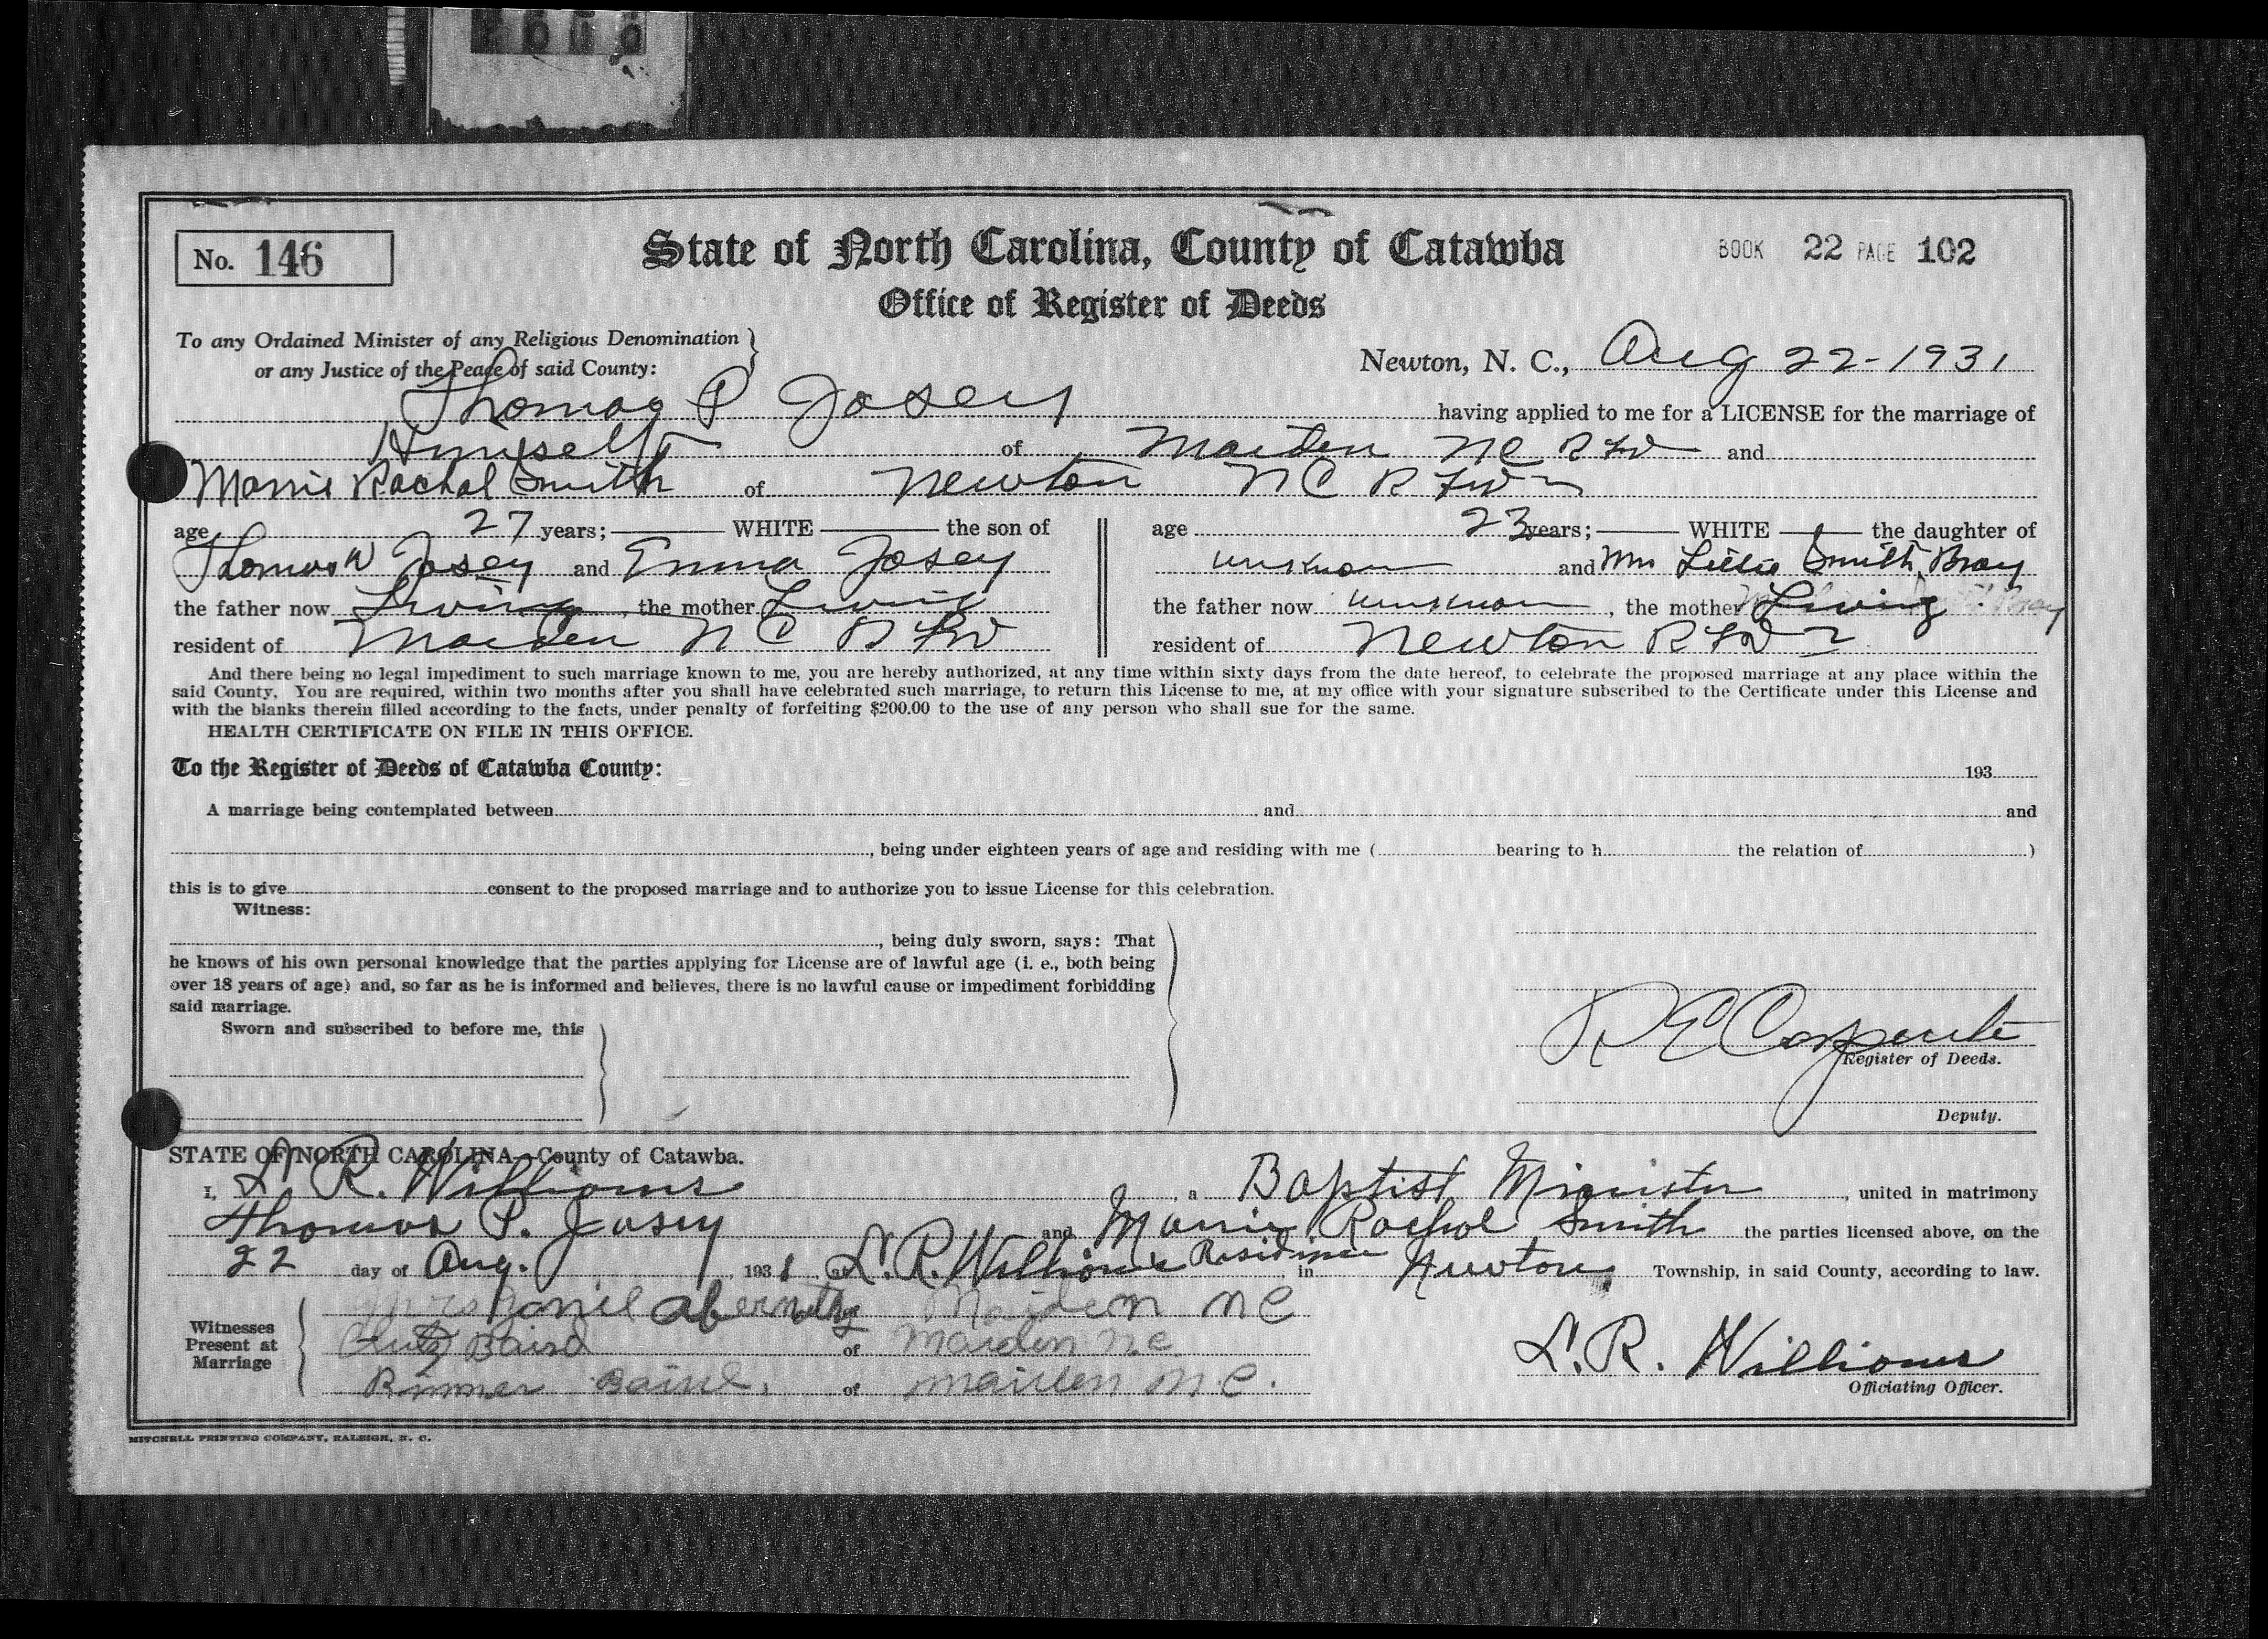 No. 146
State of North Carolina, County of Catawba
BOOK 22 PAGE 102
Office of Register of Deeds
To any Ordained Minister of any Religious Denomination
or any Justice of the Peace of said County:
Newton, N. C., Aug 22-1931
Thomas P Josey having applied to me for a LICENSE for the marriage of
Himself of Maiden NC RFD and
Mamie Rachal Smith of Newton NC RFD
age 27 years; WHITE the son of
Thomas W Josey and Emma Josey
the father now Living, the mother Living
resident of Maiden NC RFD
age 23 years; WHITE the daughter of
unknown and Mrs Lillie Smith Bray
the father now unknown, the mother Living
resident of Newton RFD 2
And there being no legal impediment to such marriage known to me, you are hereby authorized, at any time within sixty days from the date hereof, to celebrate the proposed marriage at any place within the
said County. You are required, within two months after you shall have celebrated such marriage, to return this License to me, at my office with your signature subscribed to the Certificate under this License and
with the blanks therein filled according to the facts, under penalty of forfeiting $200.00 to the use of any person who shall sue for the same.
HEALTH CERTIFICATE ON FILE IN THIS OFFICE.
To the Register of Deeds of Catawba County:
193
A marriage being contemplated between and and
, being under eighteen years of age and residing with me ( bearing to h the relation of )
this is to give consent to the proposed marriage and to authorize you to issue License for this celebration.
Witness:
, being duly sworn, says: That
he knows of his own personal knowledge that the parties applying for License are of lawful age (i. e., both being
over 18 years of age) and, so far as he is informed and believes, there is no lawful cause or impediment forbidding
said marriage.
Sworn and subscribed to before me, this
R E Carpenter
Register of Deeds.
Deputy.
STATE OF NORTH CAROLINA—County of Catawba.
I, L. R. Williams, a Baptist Minister, united in matrimony
Thomas P. Josey and Mamie Rachel Smith the parties licensed above, on the
22 day of Aug. 1931 at L. R. Williams Residence in Newton Township, in said County, according to law.
Witnesses
Present at
Marriage
Mrs Abernethy Maiden NC
Baird of Maiden N.C
of Maiden N.C.
L. R. Williams
Officiating Officer.
MITCHELL PRINTING COMPANY, RALEIGH, N. C.